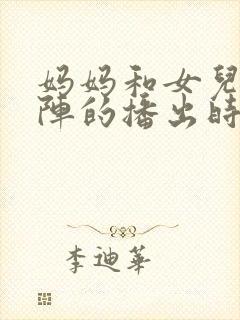 妈妈和女兒
陣的播出時
李迪華